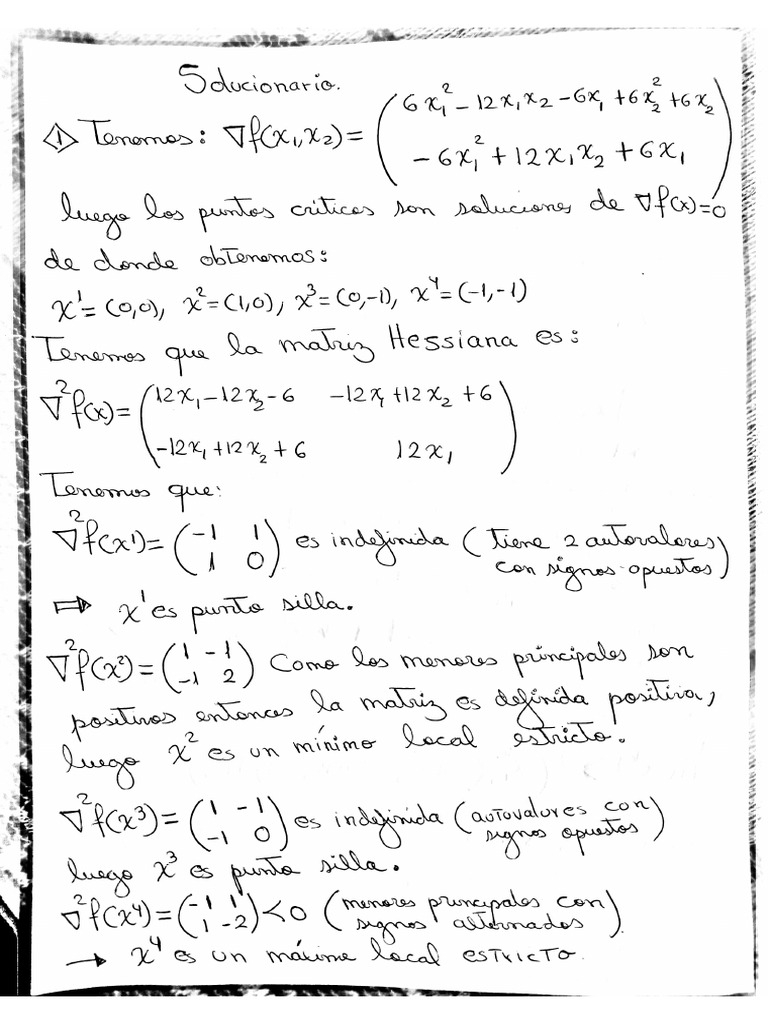 Solucionario.
① Tenemos: ∇f(x₁,x₂)= (6x₁² - 12x₁x₂ - 6x₁ + 6x₂² + 6x₂
- 6x₁² + 12x₁x₂ + 6x₁)
luego los puntos criticos son soluciones de ∇f(x)=0
de donde obtenemos:
x¹=(0,0), x²=(1,0), x³=(0,-1), x⁴=(-1,-1)
Tenemos que la matriz Hessiana es:
∇²f(x)= (12x₁-12x₂-6 -12x₁+12x₂+6
-12x₁+12x₂+6 12x₁)
Tenemos que:
∇²f(x¹)= (-1 1
1 0) es indefinida (tiene 2 autovalores
con signos opuestos)
⇒ x¹ es punto silla.
∇²f(x²)= (1 -1
-1 2) Como los menores principales son
positivos entonces la matriz es definida positiva,
luego x² es un mínimo local estricto.
∇²f(x³)= (1 -1
-1 0) es indefinida (autovalores con
signos opuestos)
luego x³ es punto silla.
∇²f(x⁴)= (-1 1
1 -2) <0 (menores principales con
signos alternados)
→ x⁴ es un máximo local estricto.